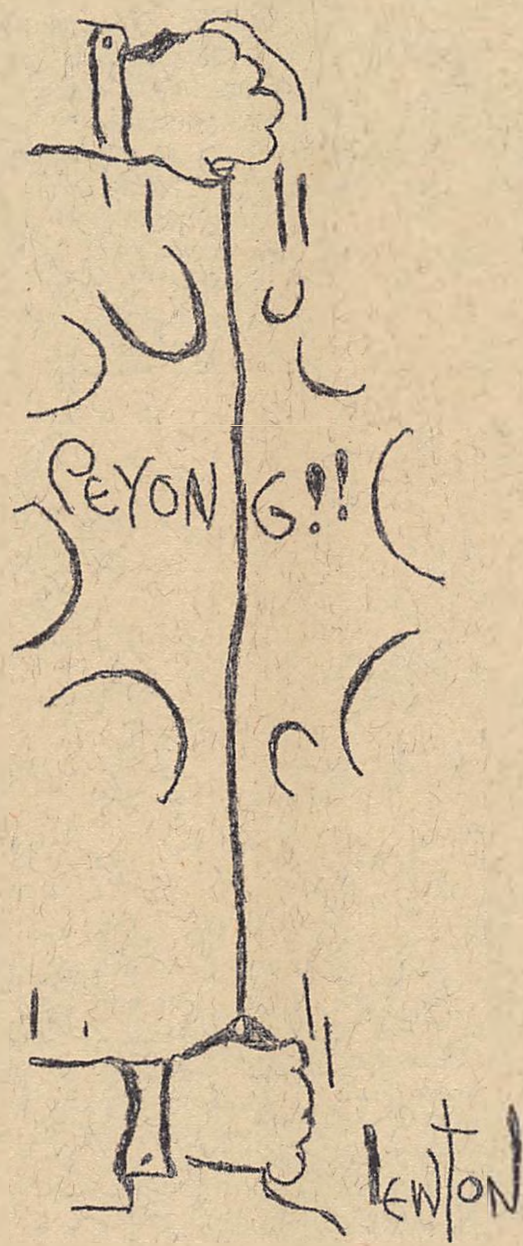 PEYONG!!
LEWTON